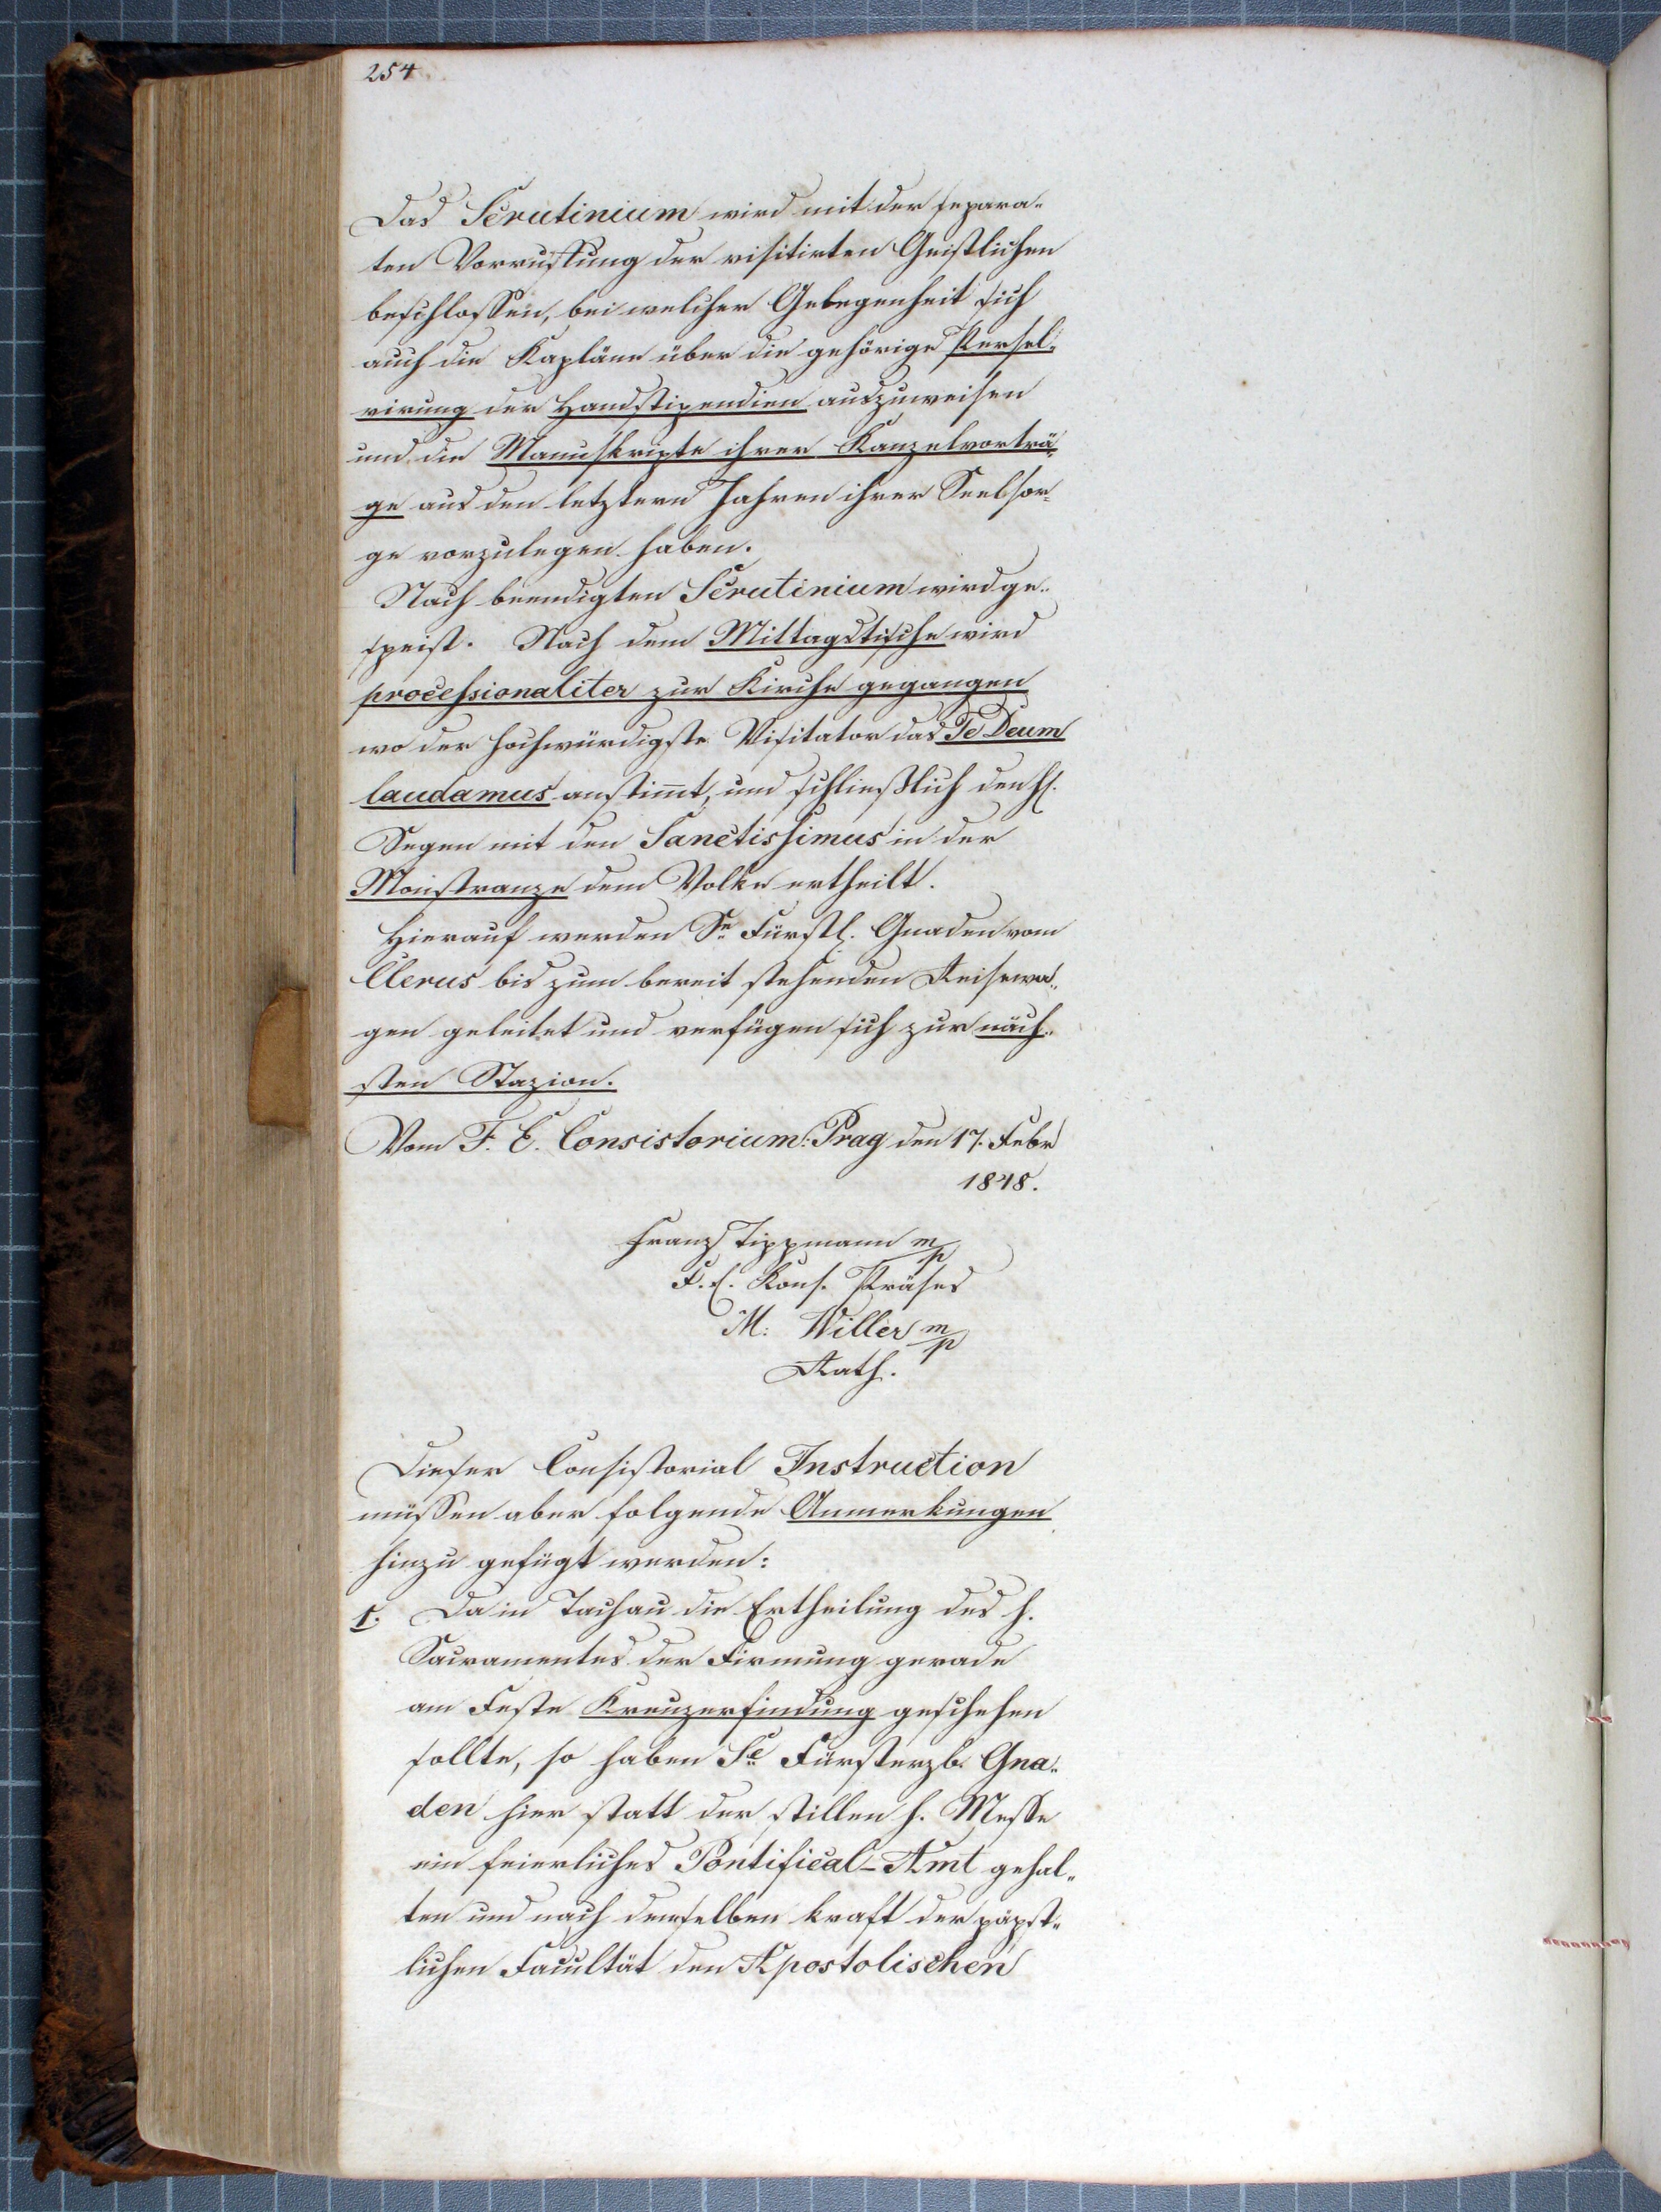 254
Das Scrutinium wird mit der separa„
ten Vorrufung der visitirten Geistlichen
beschlossen, bei welcher Gelegenheit sich
auch die Kapläne über die gehörige Persol„
virung der Handstipendien auszuweisen
und die Manuskripte ihrer Kanzelvorträ„
ge aus den letztern Jahren ihrer Seelsor„
ge vorzulegen haben.
Nach beendigten Scrutinium wird ge„
speist. Nach dem Mittagstische wird
processionaliter zur Kirche gegangen
wo der hochwürdigste Visitator das Te Deum
laudamus anstimt, und schließlich den hl.
Segen mit den Sanctissimus in der
Monstranze dem Volke ertheilt.
Hierauf werden Se Fürstl. Gnaden vom
Clerus bis zum bereit stehenden Reisewa„
gen geleitet und verfügen sich zur näch„
sten Stazion.
Vom F. E. Consistorium: Prag den 17. Febr
1848.
Franz Tippmann m/p
F. E. Kons. Präses
M: Willer m/p
Rath.
Dieser Consistorial Instruction
müssen aber folgende Anmerkungen
hinzu gefügt werden:
1. Da in Tachau die Ertheilung des h.
Sacramentes der Firmung gerade
am Feste Kreuzerfindung geschehen
sollte, so haben Se Fürsterzb. Gna„
den hier statt der stillen h. Messe
ein feierliches Pontifical-Amt gehal„
ten und nach demselben kraft der päpst„
lichen Facultät den Apostolischen